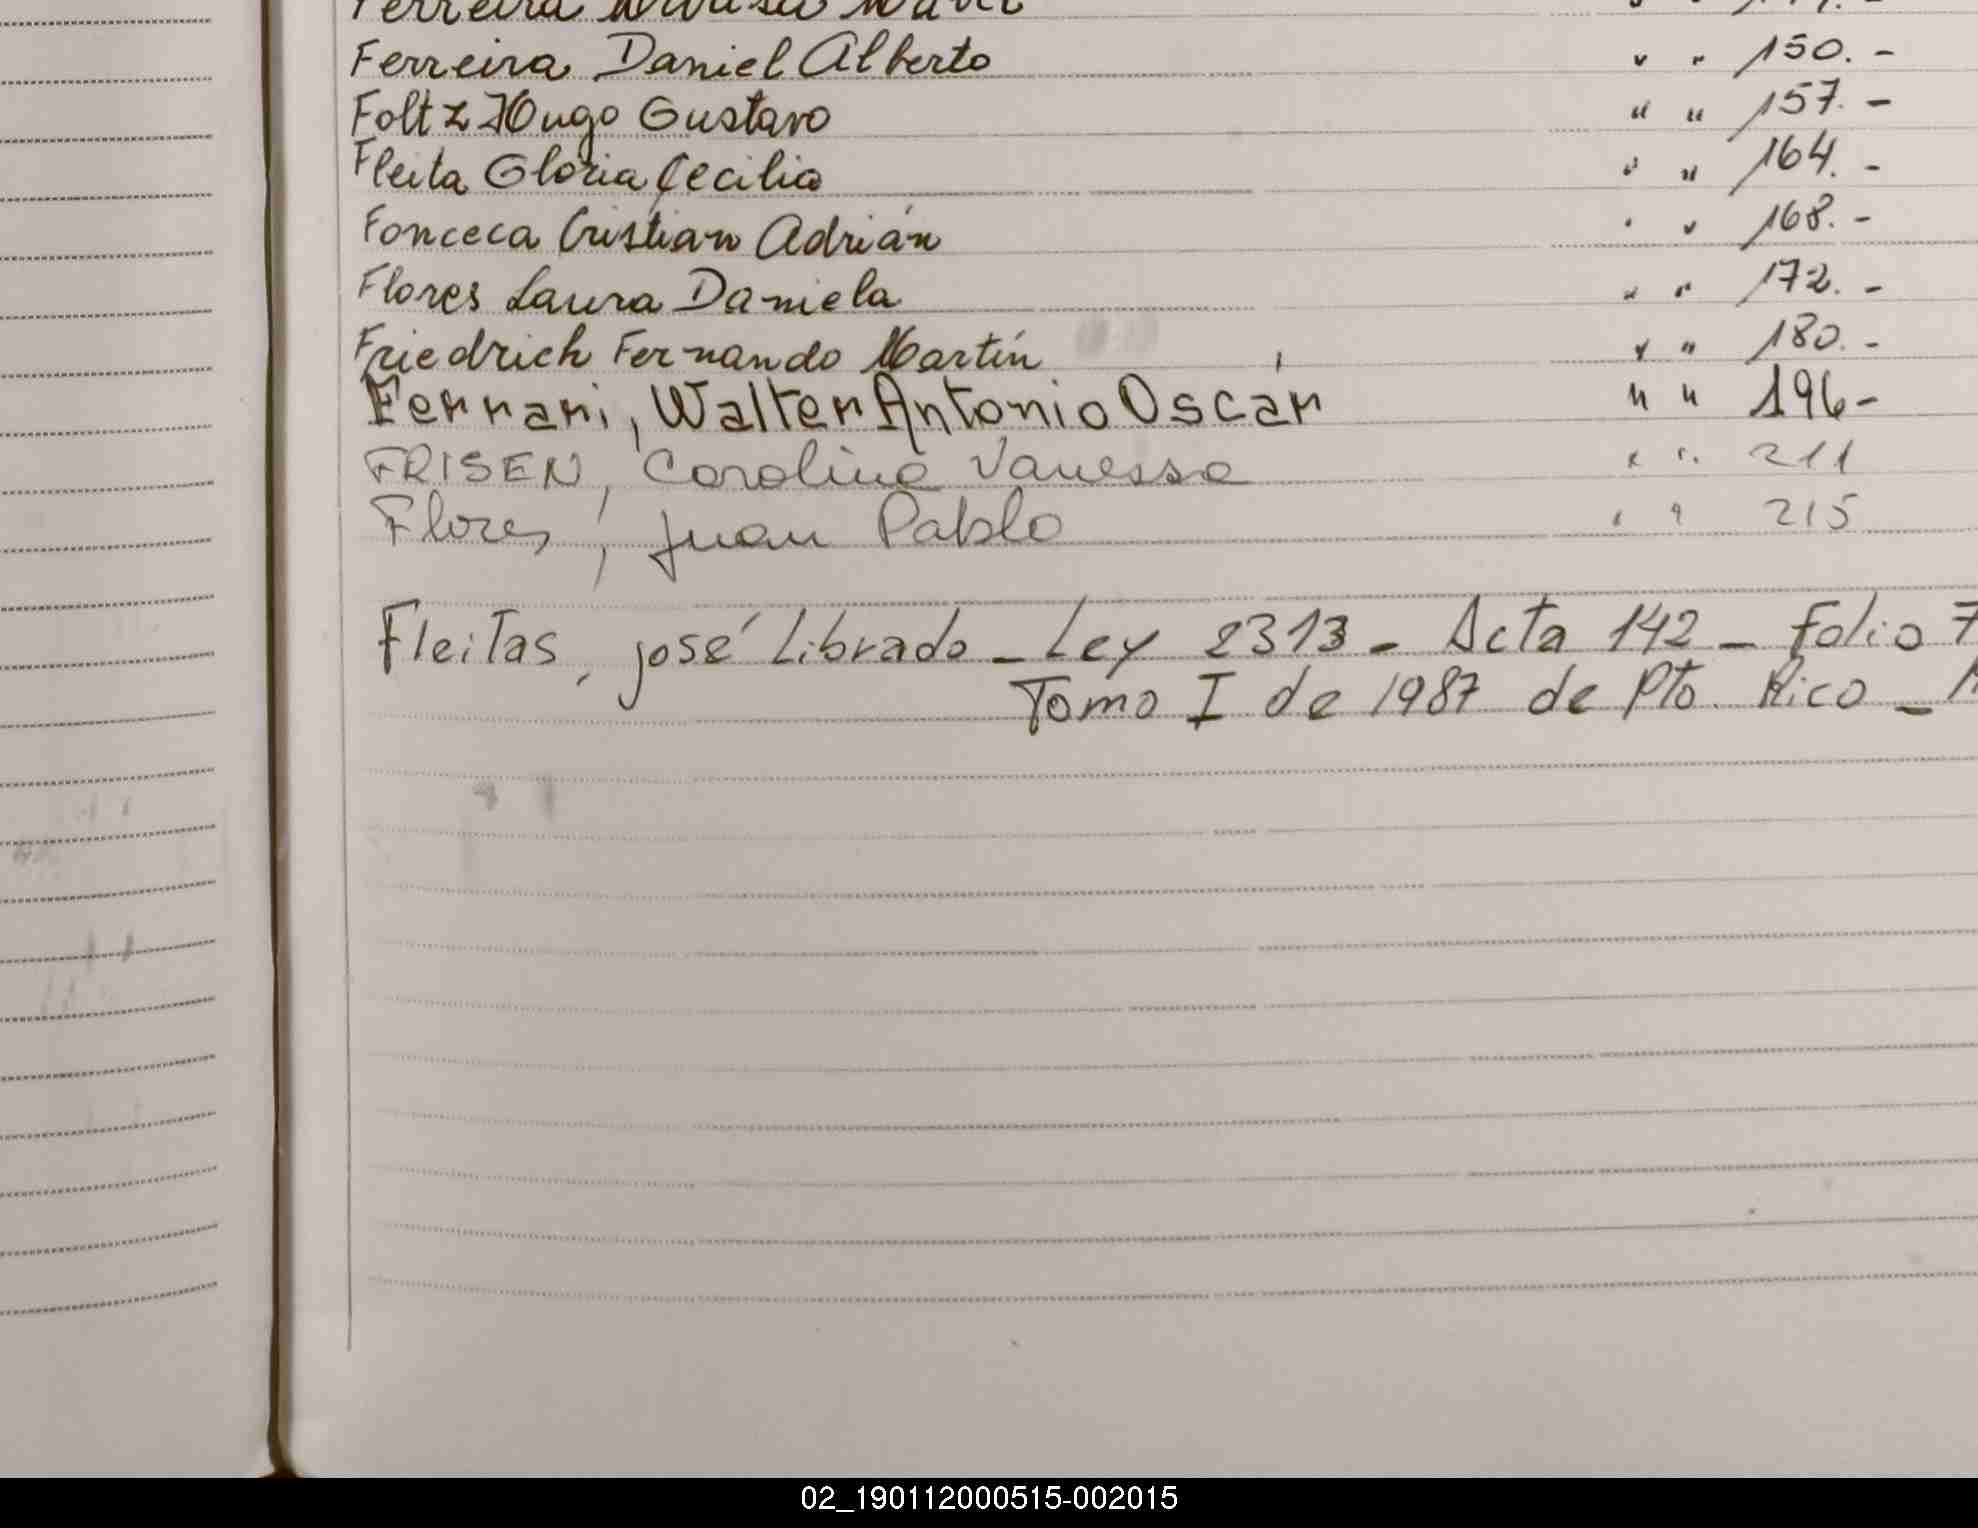 Ferreira
Ferreira Daniel Alberto " " 150.-
Foltz Hugo Gustavo " " 157.-
Fleita Gloria Cecilia " " 164.-
Fonceca Cristian Adrián " " 168.-
Flores Laura Daniela " " 172.-
Friedrich Fernando Martín " " 180.-
Ferrari, Walter Antonio Oscár " " 196-
FRISEN, Carolina Vanessa " " 211
Flores, Juan Pablo " " 215
Fleitas, josé Librado - Ley 2313 - Acta 142 - Folio 7
Tomo I de 1987 de Pto. Rico -
02_190112000515-002015